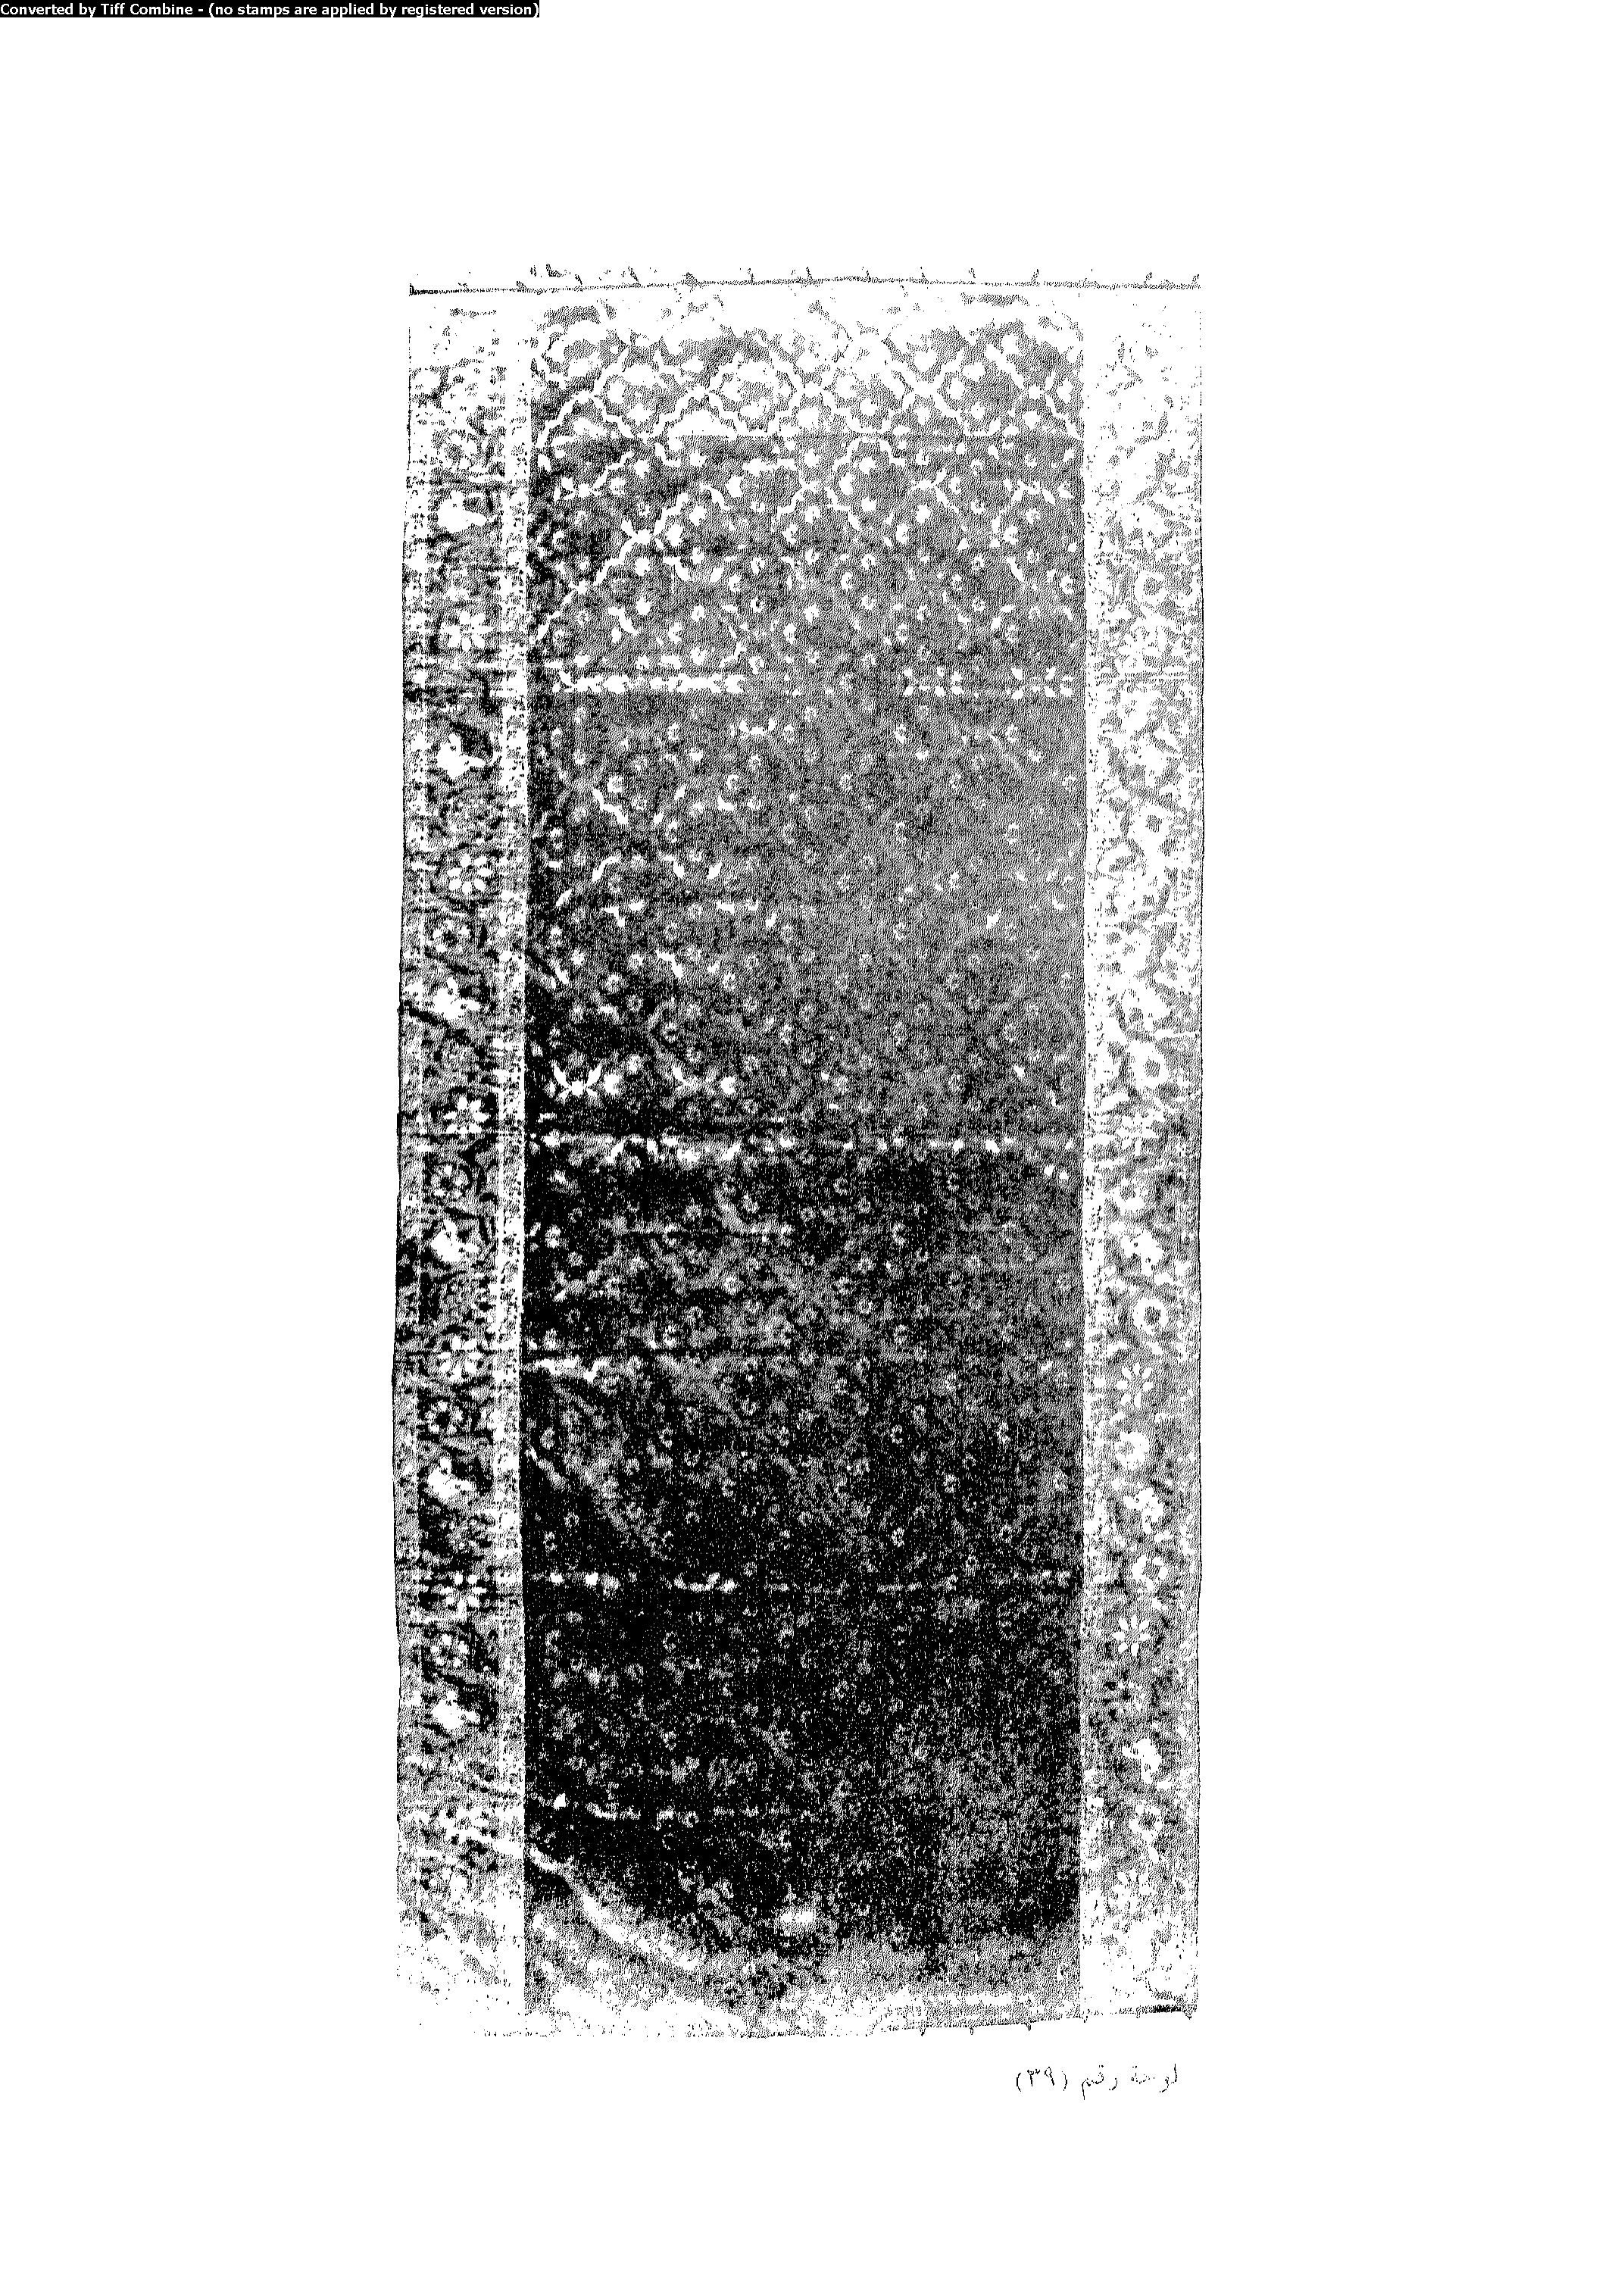 Converted by Tiff Combine - (no stamps are applied by registered version)
لوحة رقم (٣٩)